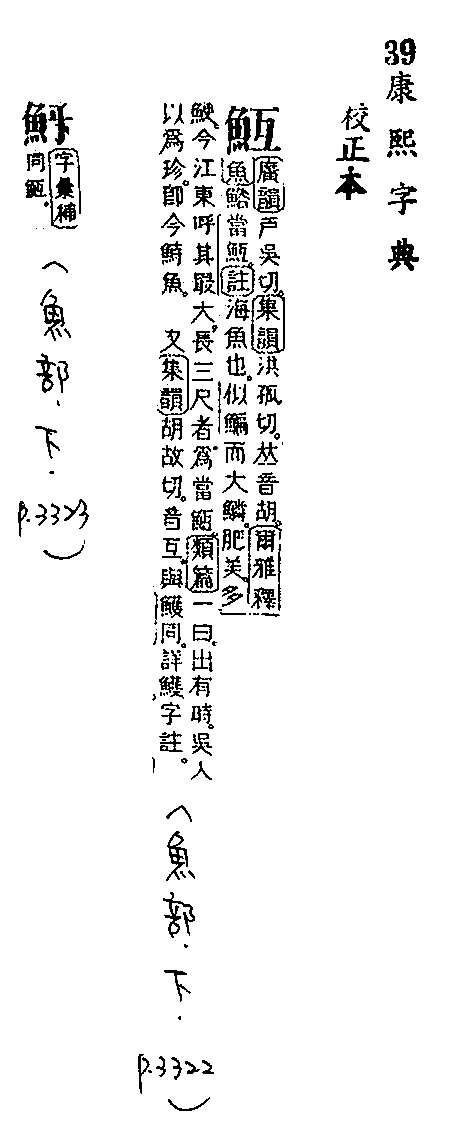 39康熙字典
校正本
魱
廣韻戸吳切集韻洪孤切𠀤音胡爾雅釋
魚鮥當魱註海魚也似鯿而大鱗肥美多
鯁今江東呼其最大長三尺者爲當魱類篇一曰出有時吳人
以爲珍卽今鰣魚 又集韻胡故切音互與鱯同詳鱯字註
(魚部.下.
p.3322)
字彙補
同魱
(魚部.下.
p.3323)